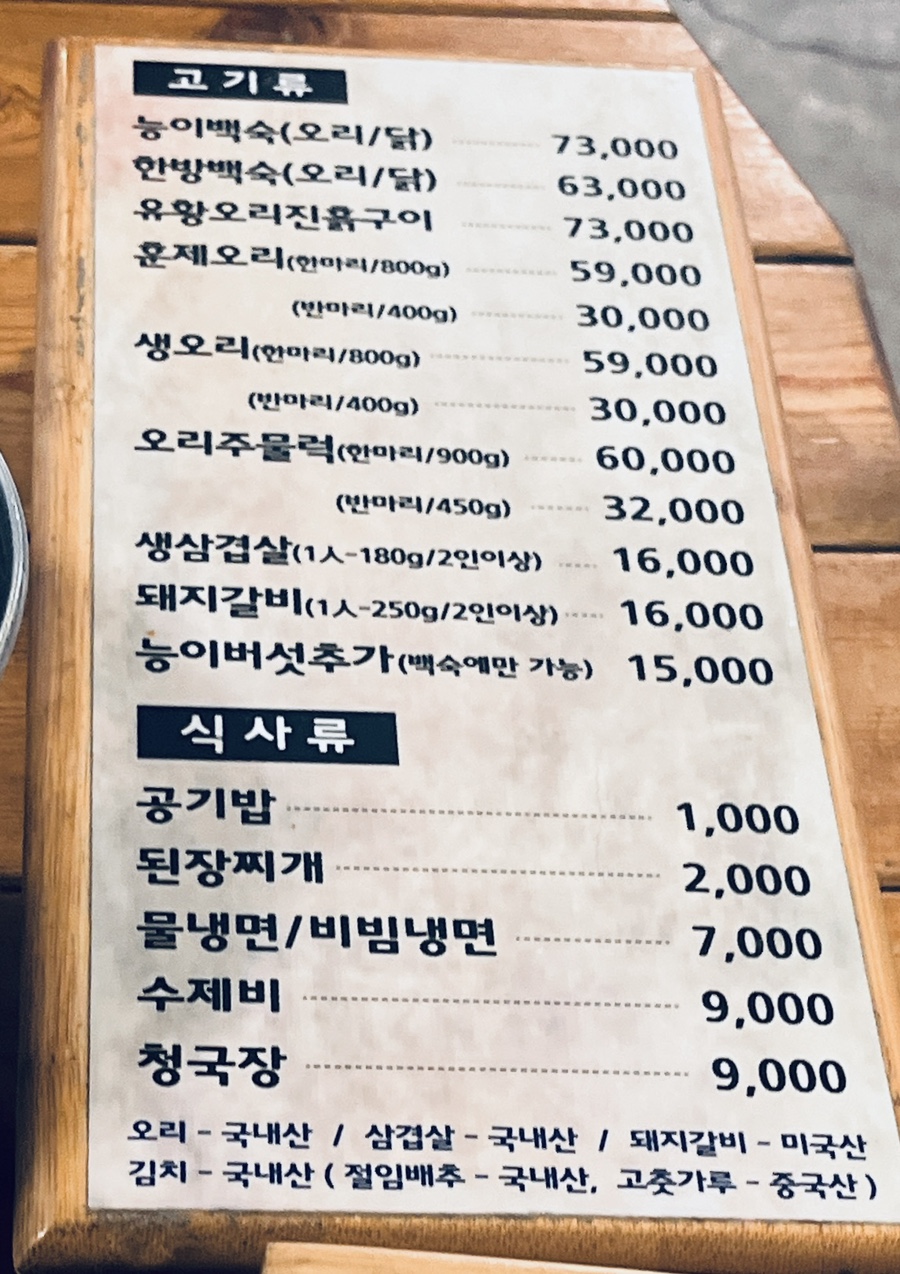 고기류
능이백숙(오리/닭) 73,000
한방백숙(오리/닭) 63,000
유황오리진흙구이 73,000
훈제오리(한마리/800g) 59,000
(반마리/400g) 30,000
생오리(한마리/800g) 59,000
(반마리/400g) 30,000
오리주물럭(한마리/900g) 60,000
(반마리/450g) 32,000
생삼겹살(1人-180g/2인이상) 16,000
돼지갈비(1人-250g/2인이상) 16,000
능이버섯추가(백숙에만 가능) 15,000
식사류
공기밥 1,000
된장찌개 2,000
물냉면/비빔냉면 7,000
수제비 9,000
청국장 9,000
오리 - 국내산 / 삼겹살 - 국내산 / 돼지갈비 - 미국산
김치 - 국내산 ( 절임배추 - 국내산, 고춧가루 - 중국산 )